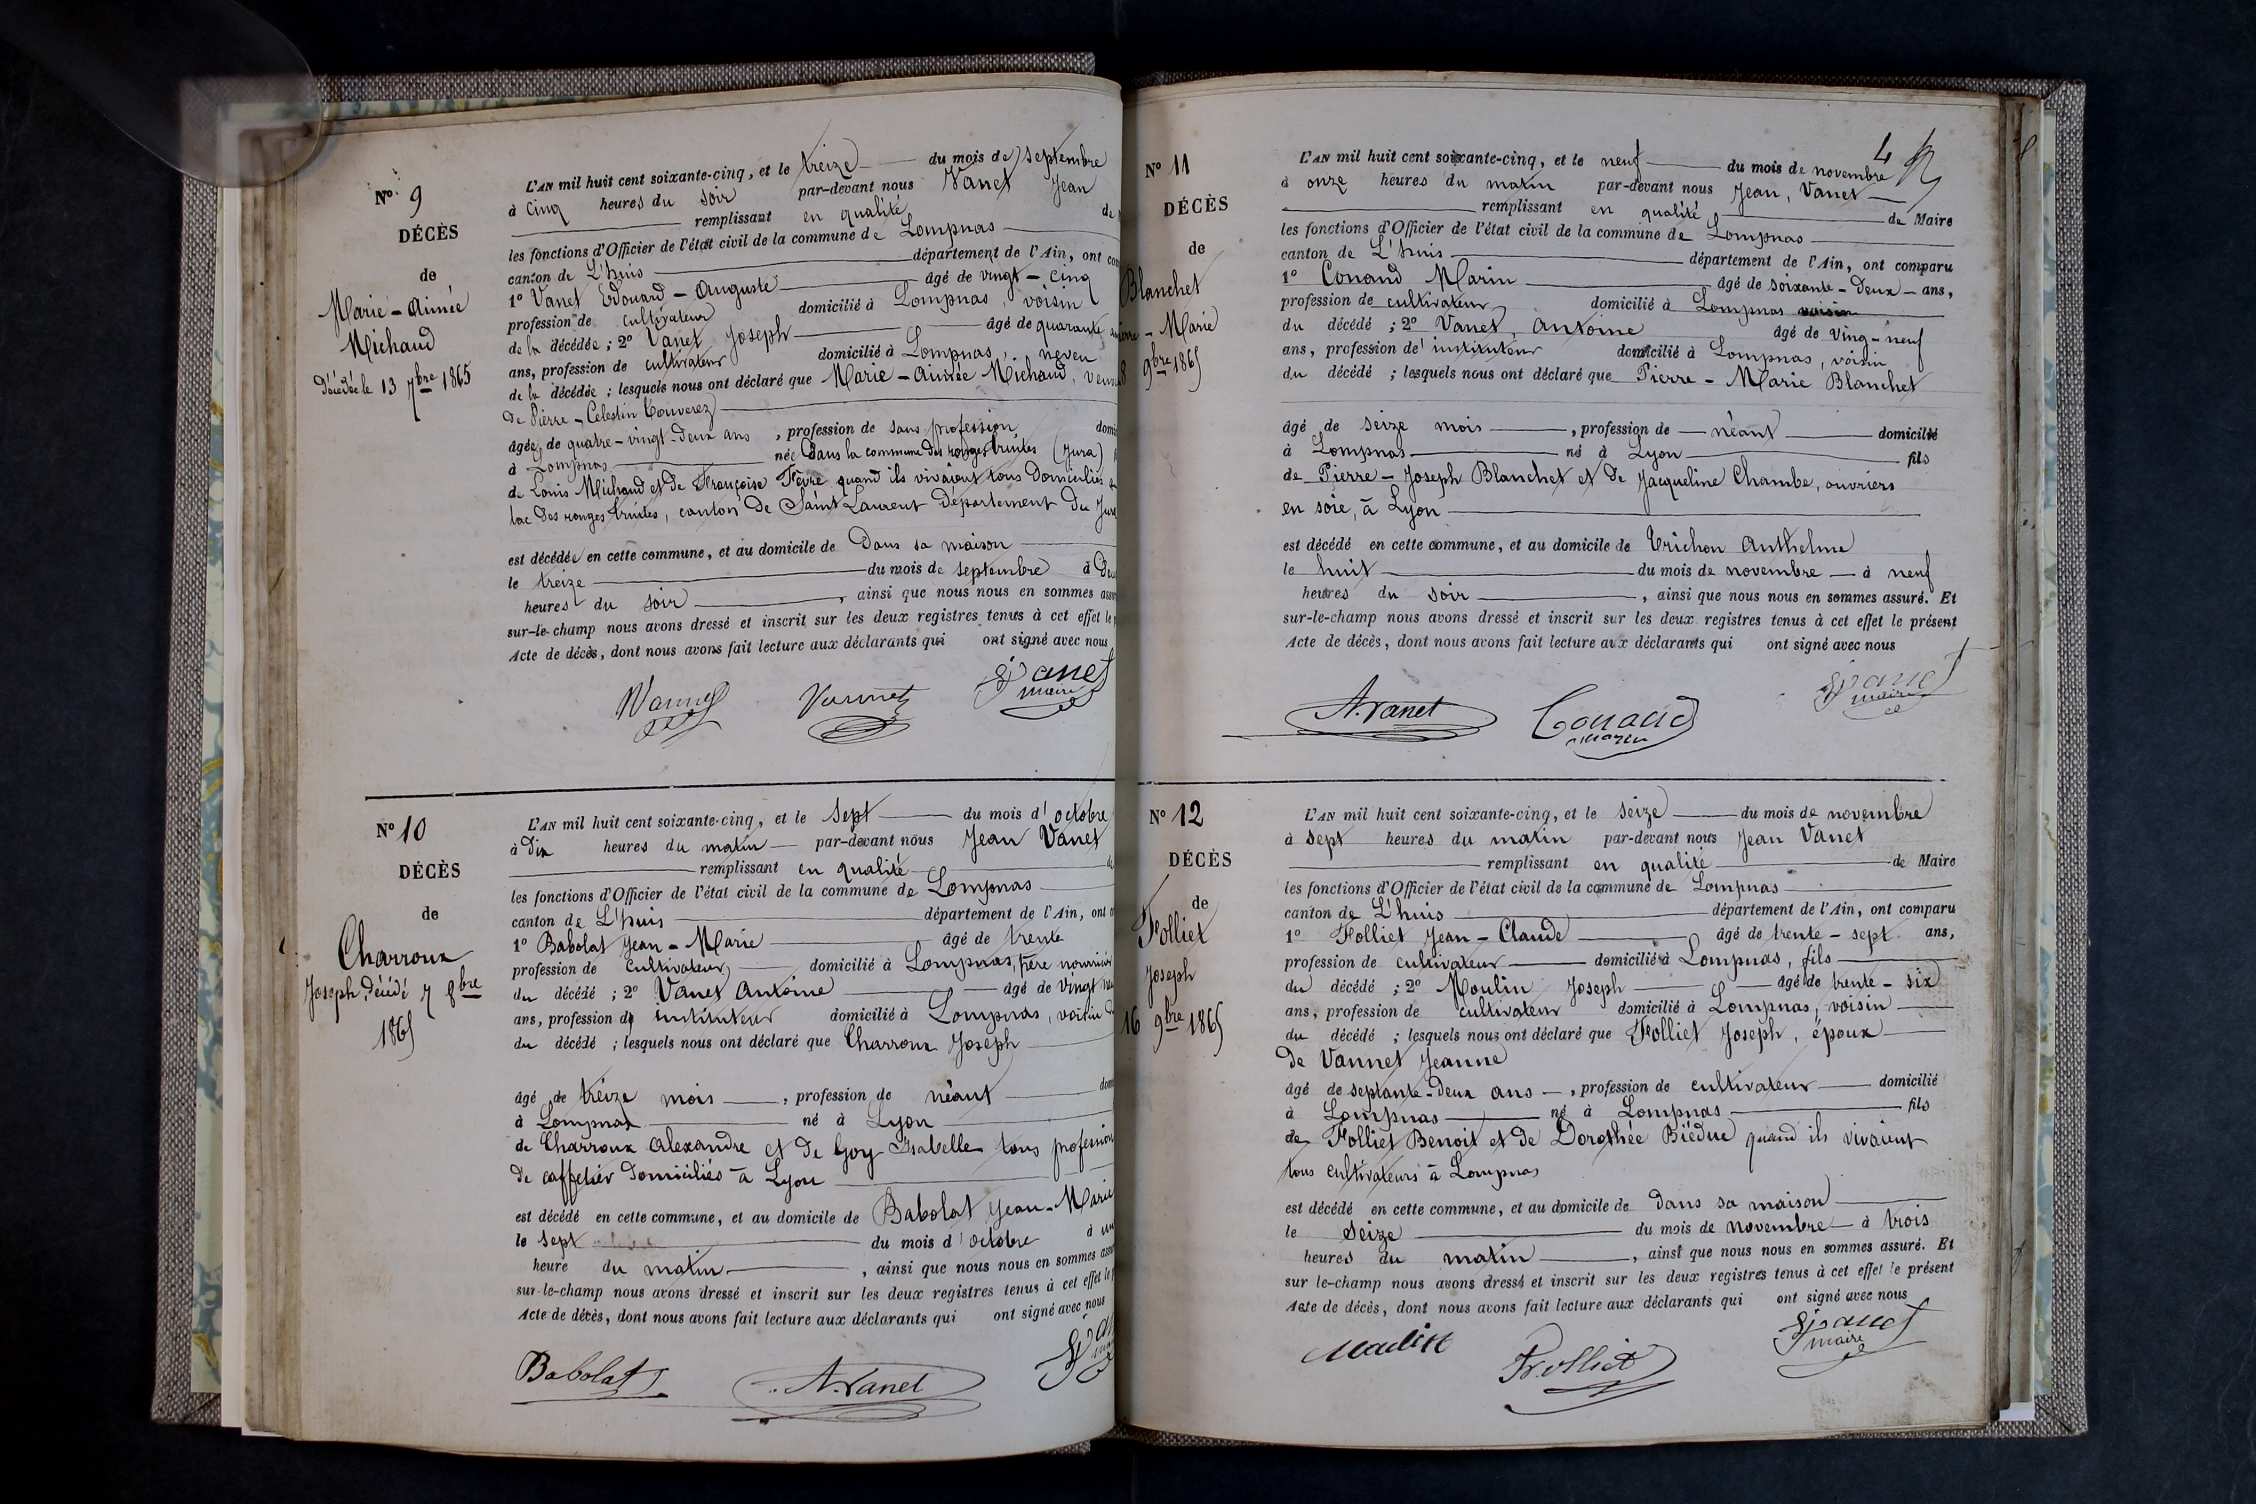 Nº 9
DÉCÈS
de
Marie-Aimée
Michaud
Décédée le 13 7bre 1865
L'AN mil huit cent soixante-cinq, et le treize du mois de septembre
à cinq heures du soir par-devant nous Vanet Jean
remplissant en qualité de
les fonctions d'Officier de l'état civil de la commune de Lompnas
canton de L'huis département de l'Ain, ont
1º Vanet Edouard-Auguste âgé de vingt-cinq
profession de cultivateur domicilié à Lompnas, voisin
de la décédée ; 2º Vanet Joseph âgé de quarante
ans, profession de cultivateur domicilié à Lompnas, neveu
de la décédée ; lesquels nous ont déclaré que Marie-Aimée Michaud,
de Pierre-Celestin Touverez
âgée de quatre-vingt-deux ans, profession de sans profession
à Lompnas née Dans la commune des rouges truites (Jura)
de Louis Michaud et de Françoise Fèvre quand ils vivaient tous domiciliés
lac Des rouges truites, canton De Saint Laurent Département Du
est décédée en cette commune, et au domicile de Dans sa maison
le treize du mois de septembre à
heures du soir, ainsi que nous nous en sommes
sur-le-champ nous avons dressé et inscrit sur les deux registres tenus à cet effet le
Acte de décès, dont nous avons fait lecture aux déclarants qui ont signé avec nous
Vannet
Vanet
maire
Nº 10
DÉCÈS
de
Charroux
Joseph, décédé 7 8bre
1865
L'AN mil huit cent soixante-cinq, et le sept du mois d'octobre
à Dix heures du matin par-devant nous Jean Vanet
remplissant en qualité
les fonctions d'Officier de l'état civil de la commune de Lompnas
canton de L'huis département de l'Ain, ont
1º Babolat Jean-Marie âgé de trente
profession de cultivateur domicilié à Lompnas, père nourricier
du décédé ; 2º Vanet Antoine âgé de vingt
ans, profession de instituteur domicilié à Lompnas, voisin
du décédé ; lesquels nous ont déclaré que Charroux Joseph
âgé de treize mois, profession de néant
à Lompnas né à Lyon
de Charroux Alexandre et De Goy Isabelle tous profession
De caffetier Domiciliés à Lyon
est décédé en cette commune, et au domicile de Babolat Jean-Marie
le sept du mois d'octobre à
heure du matin, ainsi que nous nous en sommes
sur-le-champ nous avons dressé et inscrit sur les deux registres tenus à cet effet le
Acte de décès, dont nous avons fait lecture aux déclarants qui ont signé avec nous
Babolat
A. Vanet
Nº 11
DÉCÈS
de
Blanchet
Marie
8 9bre 1865
4
L'AN mil huit cent soixante-cinq, et le neuf du mois de novembre
à onze heures du matin par-devant nous Jean, Vanet
remplissant en qualité de Maire
les fonctions d'Officier de l'état civil de la commune de Lompnas
canton de L'huis département de l'Ain, ont comparu
1º Conand Marin âgé de soixante-deux ans,
profession de cultivateur domicilié à Lompnas voisin
du décédé ; 2º Vanet, Antoine âgé de ving-neuf
ans, profession de instituteur domicilié à Lompnas, voisin
du décédé ; lesquels nous ont déclaré que Pierre-Marie Blanchet
âgé de seize mois, profession de néant domicilié
à Lompnas né à Lyon fils
de Pierre-Joseph Blanchet et De Jacqueline Chambe, ouvriers
en soie, à Lyon
est décédé en cette commune, et au domicile de Trichon Anthelme
le huit du mois de novembre à neuf
heures du soir, ainsi que nous nous en sommes assuré. Et
sur-le-champ nous avons dressé et inscrit sur les deux registres tenus à cet effet le présent
Acte de décès, dont nous avons fait lecture aux déclarants qui ont signé avec nous
A. Vanet
Conand
marin
Vanet
maire
Nº 12
DÉCÈS
de
Folliet
Joseph
16 9bre 1865
L'AN mil huit cent soixante-cinq, et le seize du mois de novembre
à sept heures du matin par-devant nous Jean Vanet
remplissant en qualité de Maire
les fonctions d'Officier de l'état civil de la commune de Lompnas
canton de L'huis département de l'Ain, ont comparu
1º Folliet Jean-Claude âgé de trente-sept ans,
profession de cultivateur domicilié à Lompnas, fils
du décédé ; 2º Moulin Joseph âgé de trente-six
ans, profession de cultivateur domicilié à Lompnas, voisin
du décédé ; lesquels nous ont déclaré que Folliet Joseph, époux
De Vannet Jeanne
âgé de septante-deux ans, profession de cultivateur domicilié
à Lompnas né à Lompnas fils
de Folliet Benoit et de Dorothée Biédue quand ils vivaient
tous cultivateurs à Lompnas
est décédé en cette commune, et au domicile de Dans sa maison
le Seize du mois de novembre à trois
heures du matin, ainsi que nous nous en sommes assuré. Et
sur le-champ nous avons dressé et inscrit sur les deux registres tenus à cet effet le présent
Acte de décès, dont nous avons fait lecture aux déclarants qui ont signé avec nous
Moulin
Folliet
Vanet
maire